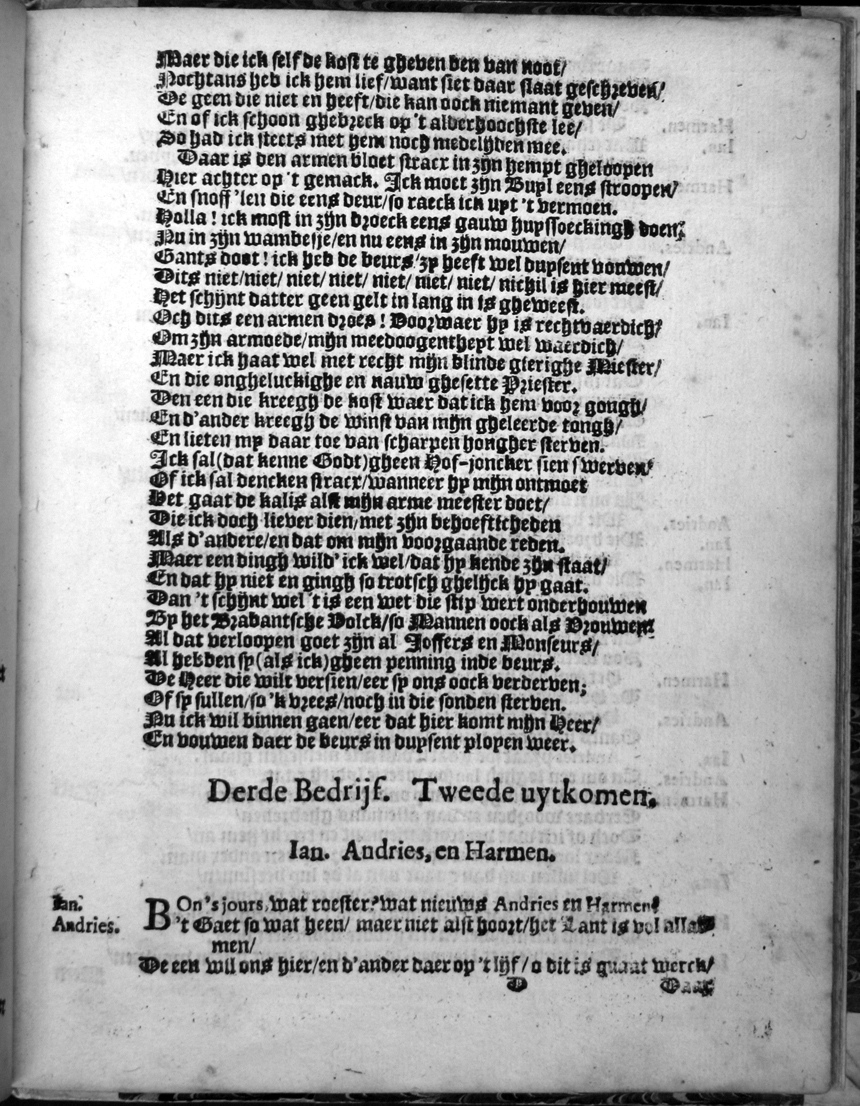 Maer die ick self de kost te gheven ben van noot/
Nochtans heb ick hem lief/want siet daar staat geschreven/
De geen die niet en heeft/die kan oock niemant geven/
En of ick schoon ghebreck op 't alderhoochste lee/
So had ick steets met hem noch medelijden mee.
Daar is den armen bloet stracx in zijn hempt gheloopen
Hier achter op 't gemack. Ick moet zijn Buyl eens stroopen/
En snoff'len die eens deur/so raeck ick uyt 't vermoen.
Holla! ick most in zijn broeck eens gauw huyssoeckingh doen;
Nu in zijn wambesje/en nu eens in zijn mouwen/
Gants doot! ick heb de beurs/zy heeft wel duysent vouwen/
Dits niet/niet/niet/niet/niet/niet/niet/nichil is hier meest/
Het schijnt datter geen gelt in lang in is gheweest.
Och dits een armen droes! Voorwaer hy is rechtvaerdich/
Om zijn armoede/mijn meedoogentheyt wel waerdich/
Maer ick haat wel met recht mijn blinde gierighe Miester/
En die ongheluckighe en nauw ghesette Priester.
Den een die kreegh de kost waer dat ick hem voor gongh/
En d'ander kreegh de winst van mijn gheleerde tongh/
En lieten my daar toe van scharpen hongher sterven.
Ick sal(dat kenne Godt)gheen Hof-joncker sien swerven/
Of ick sal dencken stracx/wanneer hy mijn ontmoet
Het gaat de kalis alst mijn arme meester doet/
Die ick doch liever dien/met zijn behoefticheden
Als d'andere/en dat om mijn voorgaande reden.
Maer een dingh wild' ick wel/dat hy kende zijn staat/
En dat hy niet en gingh so trotsch ghelijck hy gaat.
Dan 't schijnt wel 't is een wet die stip wert onderhouwen
By het Brabantsche Volck/so Mannen oock als Vrouwen:
Al dat verloopen goet zijn al Joffers en Monseurs/
Al hebben sy(als ick)gheen penning inde beurs.
De Heer die wilt versien/eer sy ons oock verderven;
Of sy sullen/so 'k vrees/noch in die sonden sterven.
Nu ick wil binnen gaen/eer dat hier komt mijn Heer/
En vouwen daer de beurs in duysent ployen weer.
Derde Bedrijf. Tweede uytkomen.
Ian. Andries, en Harmen.
Ian. BOn's jours, wat roester? wat nieuws Andries en Harmen?
Andries. 't Gaet so wat heen/ maer niet alst hoort/het Lant is vol allar
men/
De een wil ons hier/en d'ander daer op 't lijf/o dit is quaat werck/
D Daar